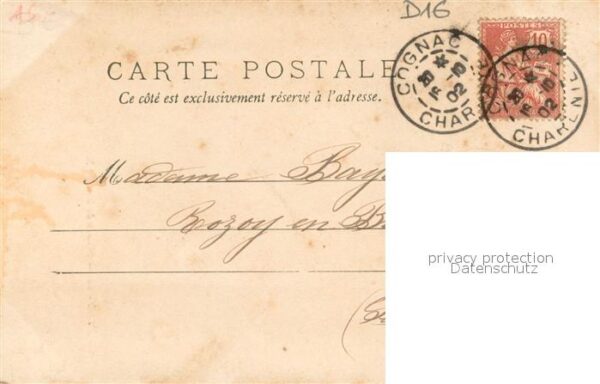 D16
POSTES
10
COGNAC
CHAR
02
COGNAC
CHARENTE
02
CARTE POSTALE
Ce côté est exclusivement réservé à l'adresse.
Madame Bay
Rozoy en B
privacy protection
Datenschutz